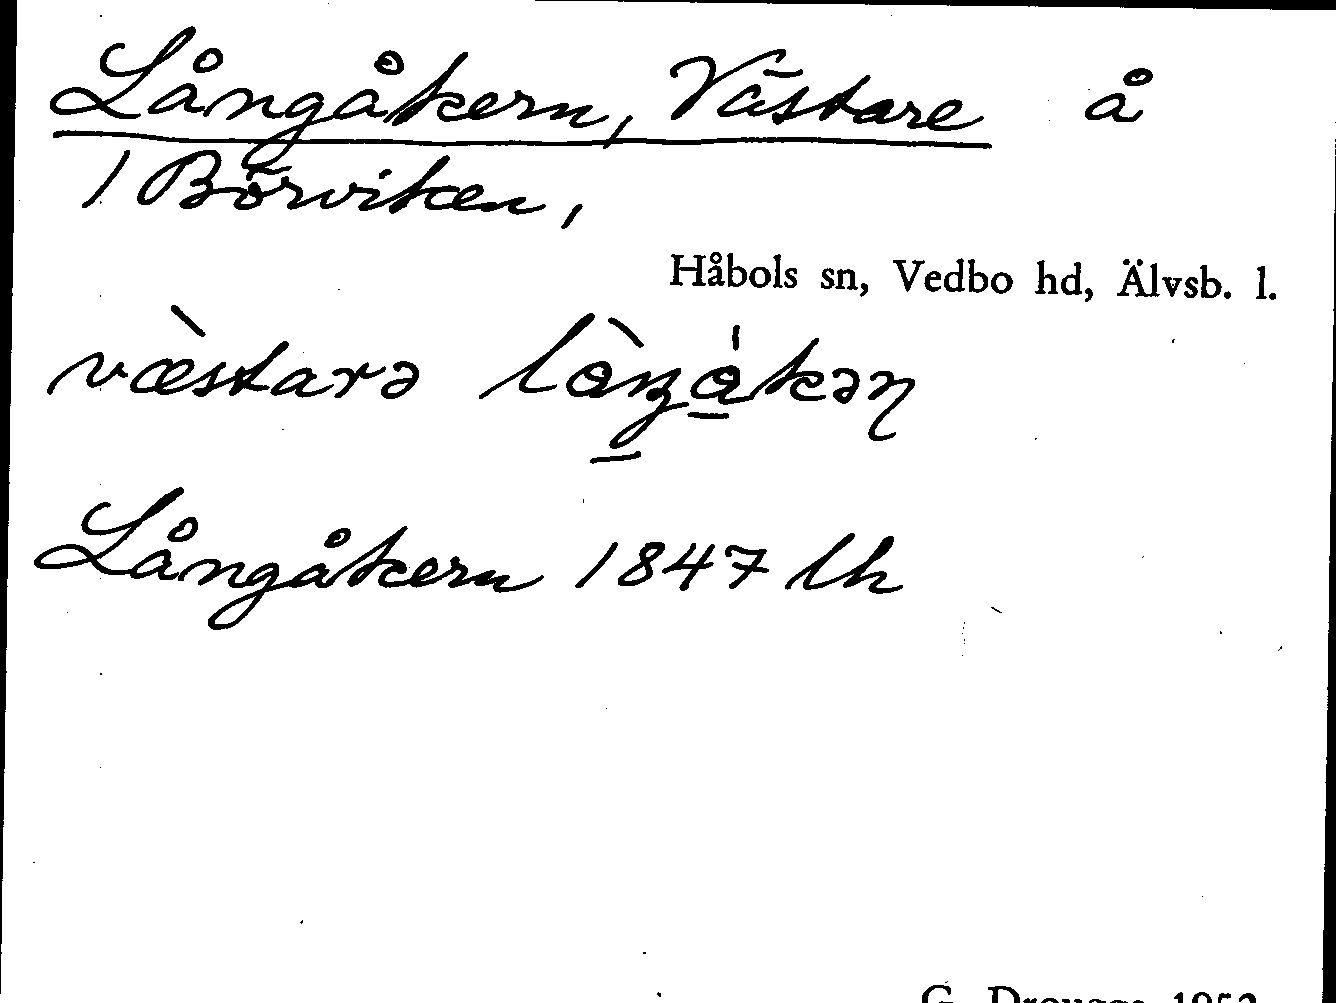 Långåkern, Västare å
1 Börviken,
Håbols sn, Vedbo hd, Älvsb. l.
væ̀starə lò̀ŋå̍kəɳ
Långåkern 1847 lh